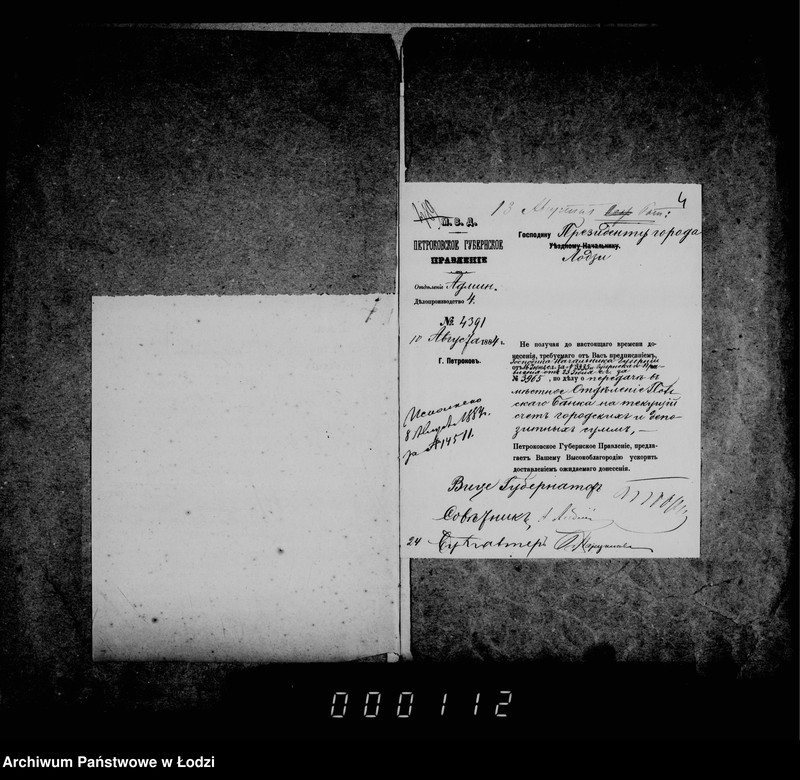 4
13 Августа
М. В. Д.
ПЕТРОКОВСКОЕ ГУБЕРНСКОЕ
ПРАВЛЕНІЕ
Отдѣленіе Админ.
Дѣлопроизводство 4.
№ 4391
10 Августа 1884 г.
Г. Петроковъ.
Исполнено
8 Августа 188
за № 14511.
Господину Президенту города
Уѣздному Начальнику.
Лодзи
Не получая до настоящаго времени до-
несенія, требуемаго отъ Васъ предписаніемъ,
Господина Начальника Губерніи
за № 3335 и Губернскаго Пра-
вленія отъ 23 Іюля с. г. за
№ 3965, по дѣлу о передачѣ въ
мѣстное Отдѣленіе Поль
скаго Банка на текущій
счетъ городскихъ и депо-
зитныхъ суммъ, —
Петроковское Губернское Правленіе, предла-
гаетъ Вашему Высокоблагородію ускорить
доставленіемъ ожидаемаго донесенія.
Вице Губернаторъ
Совѣтникъ,
24 Бухгалтеръ
000112
Archiwum Państwowe w Łodzi